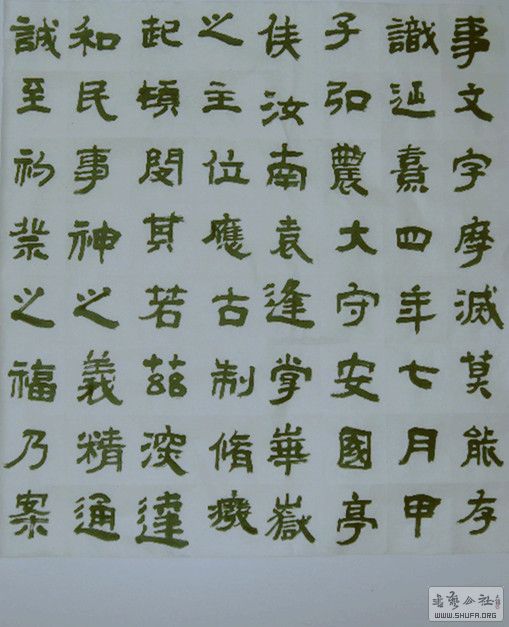 事文字摩滅莫能存
識延熹四年七月甲
子弘農大守安國亭
侯汝南袁逢掌華嶽
之主位應古制脩癈
起頓閔其若茲深達
和民事神之義精通
誠至礿祭之福乃案
書藝公社
WWW.SHUFA.ORG